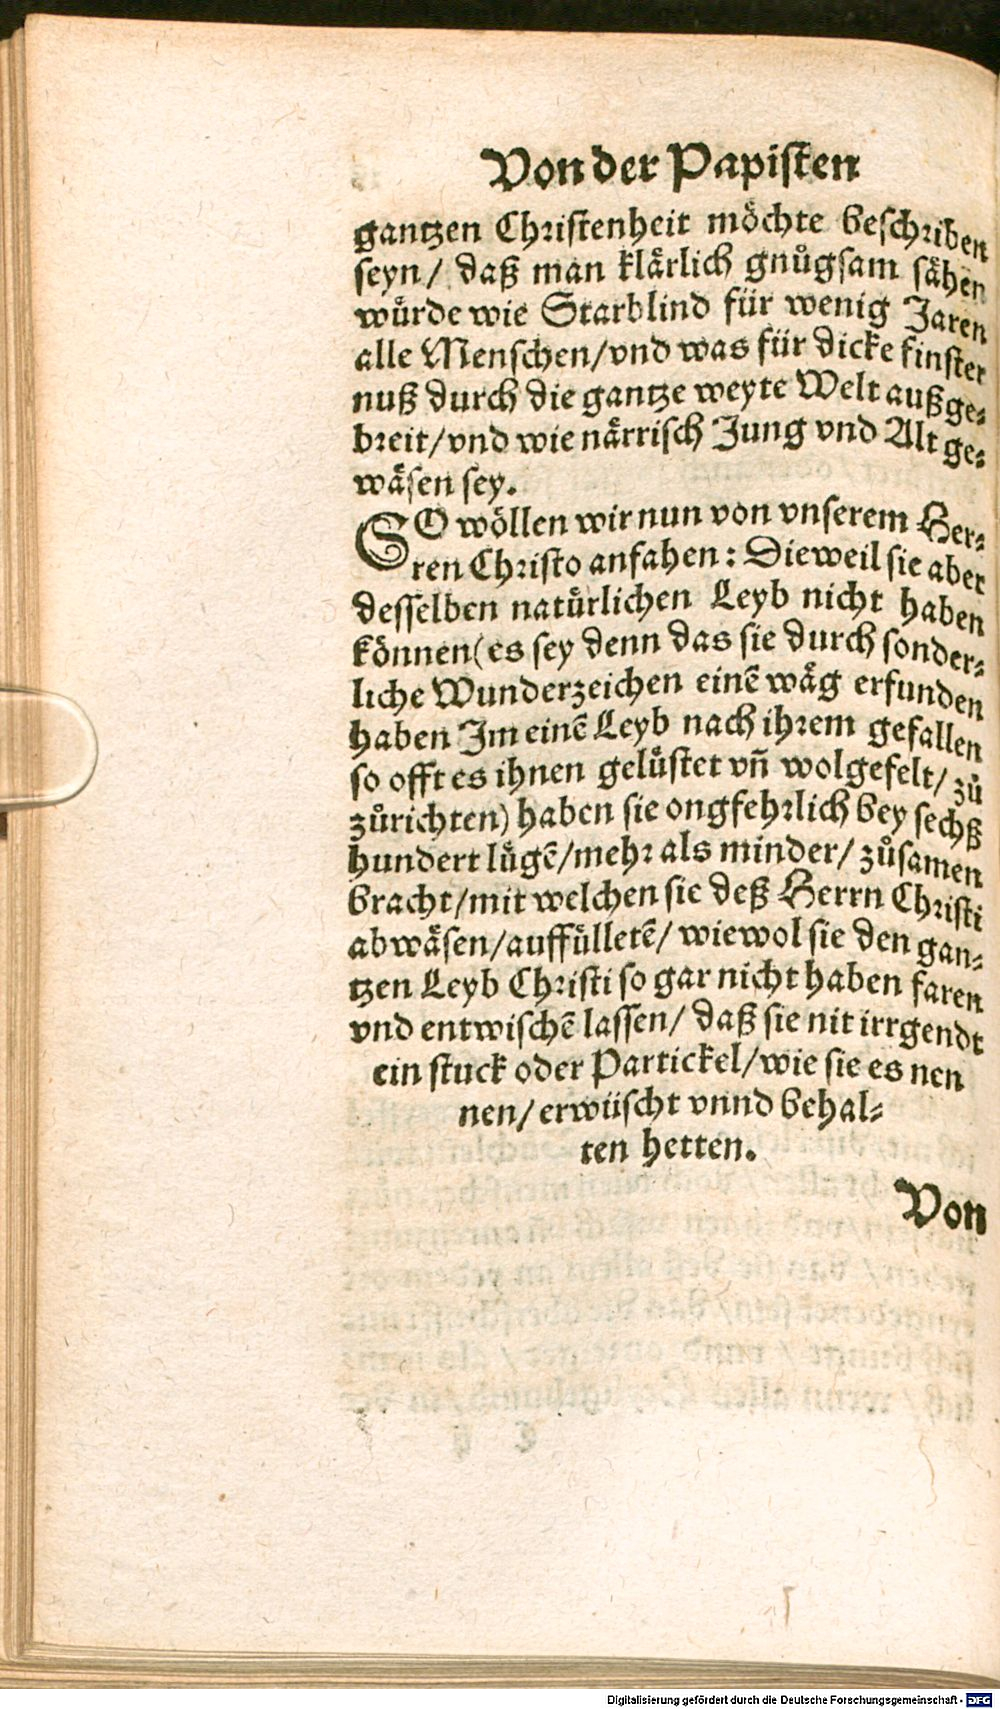 Von der Papisten
gantzen Christenheit möchte beschriben
seyn/ daß man klärlich gnůgsam sähen
wůrde wie Starblind für wenig Jaren
alle Menschen/vnd was für dicke finster
nuß durch die gantze weyte Welt außge⸗
breit/vnd wie närrisch Jung vnd Alt ge⸗
wäsen sey.
SO wöllen wir nun von vnserem Her⸗
ren Christo anfahen: Dieweil sie aber
desselben natürlichen Leyb nicht haben
können(es sey denn das sie durch sonder⸗
liche Wunderzeichen einē wäg erfunden
haben Im einē Leyb nach ihrem gefallen
so offt es ihnen gelüstet vñ wolgefelt/ zů
zůrichten) haben sie ongfehrlich bey sechß
hundert lügē/mehr als minder/ zůsamen
bracht/mit welchen sie deß Herrn Christi
abwäsen/auffülletē/ wiewol sie den gan⸗
tzen Leyb Christi so gar nicht haben faren
vnd entwischē lassen/ daß sie nit irrgendt
ein stuck oder Partickel/wie sie es nen
nen/ erwüscht vnnd behal⸗
ten hetten.
Von
Digitalisierung gefördert durch die Deutsche Forschungsgemeinschaft - DFG